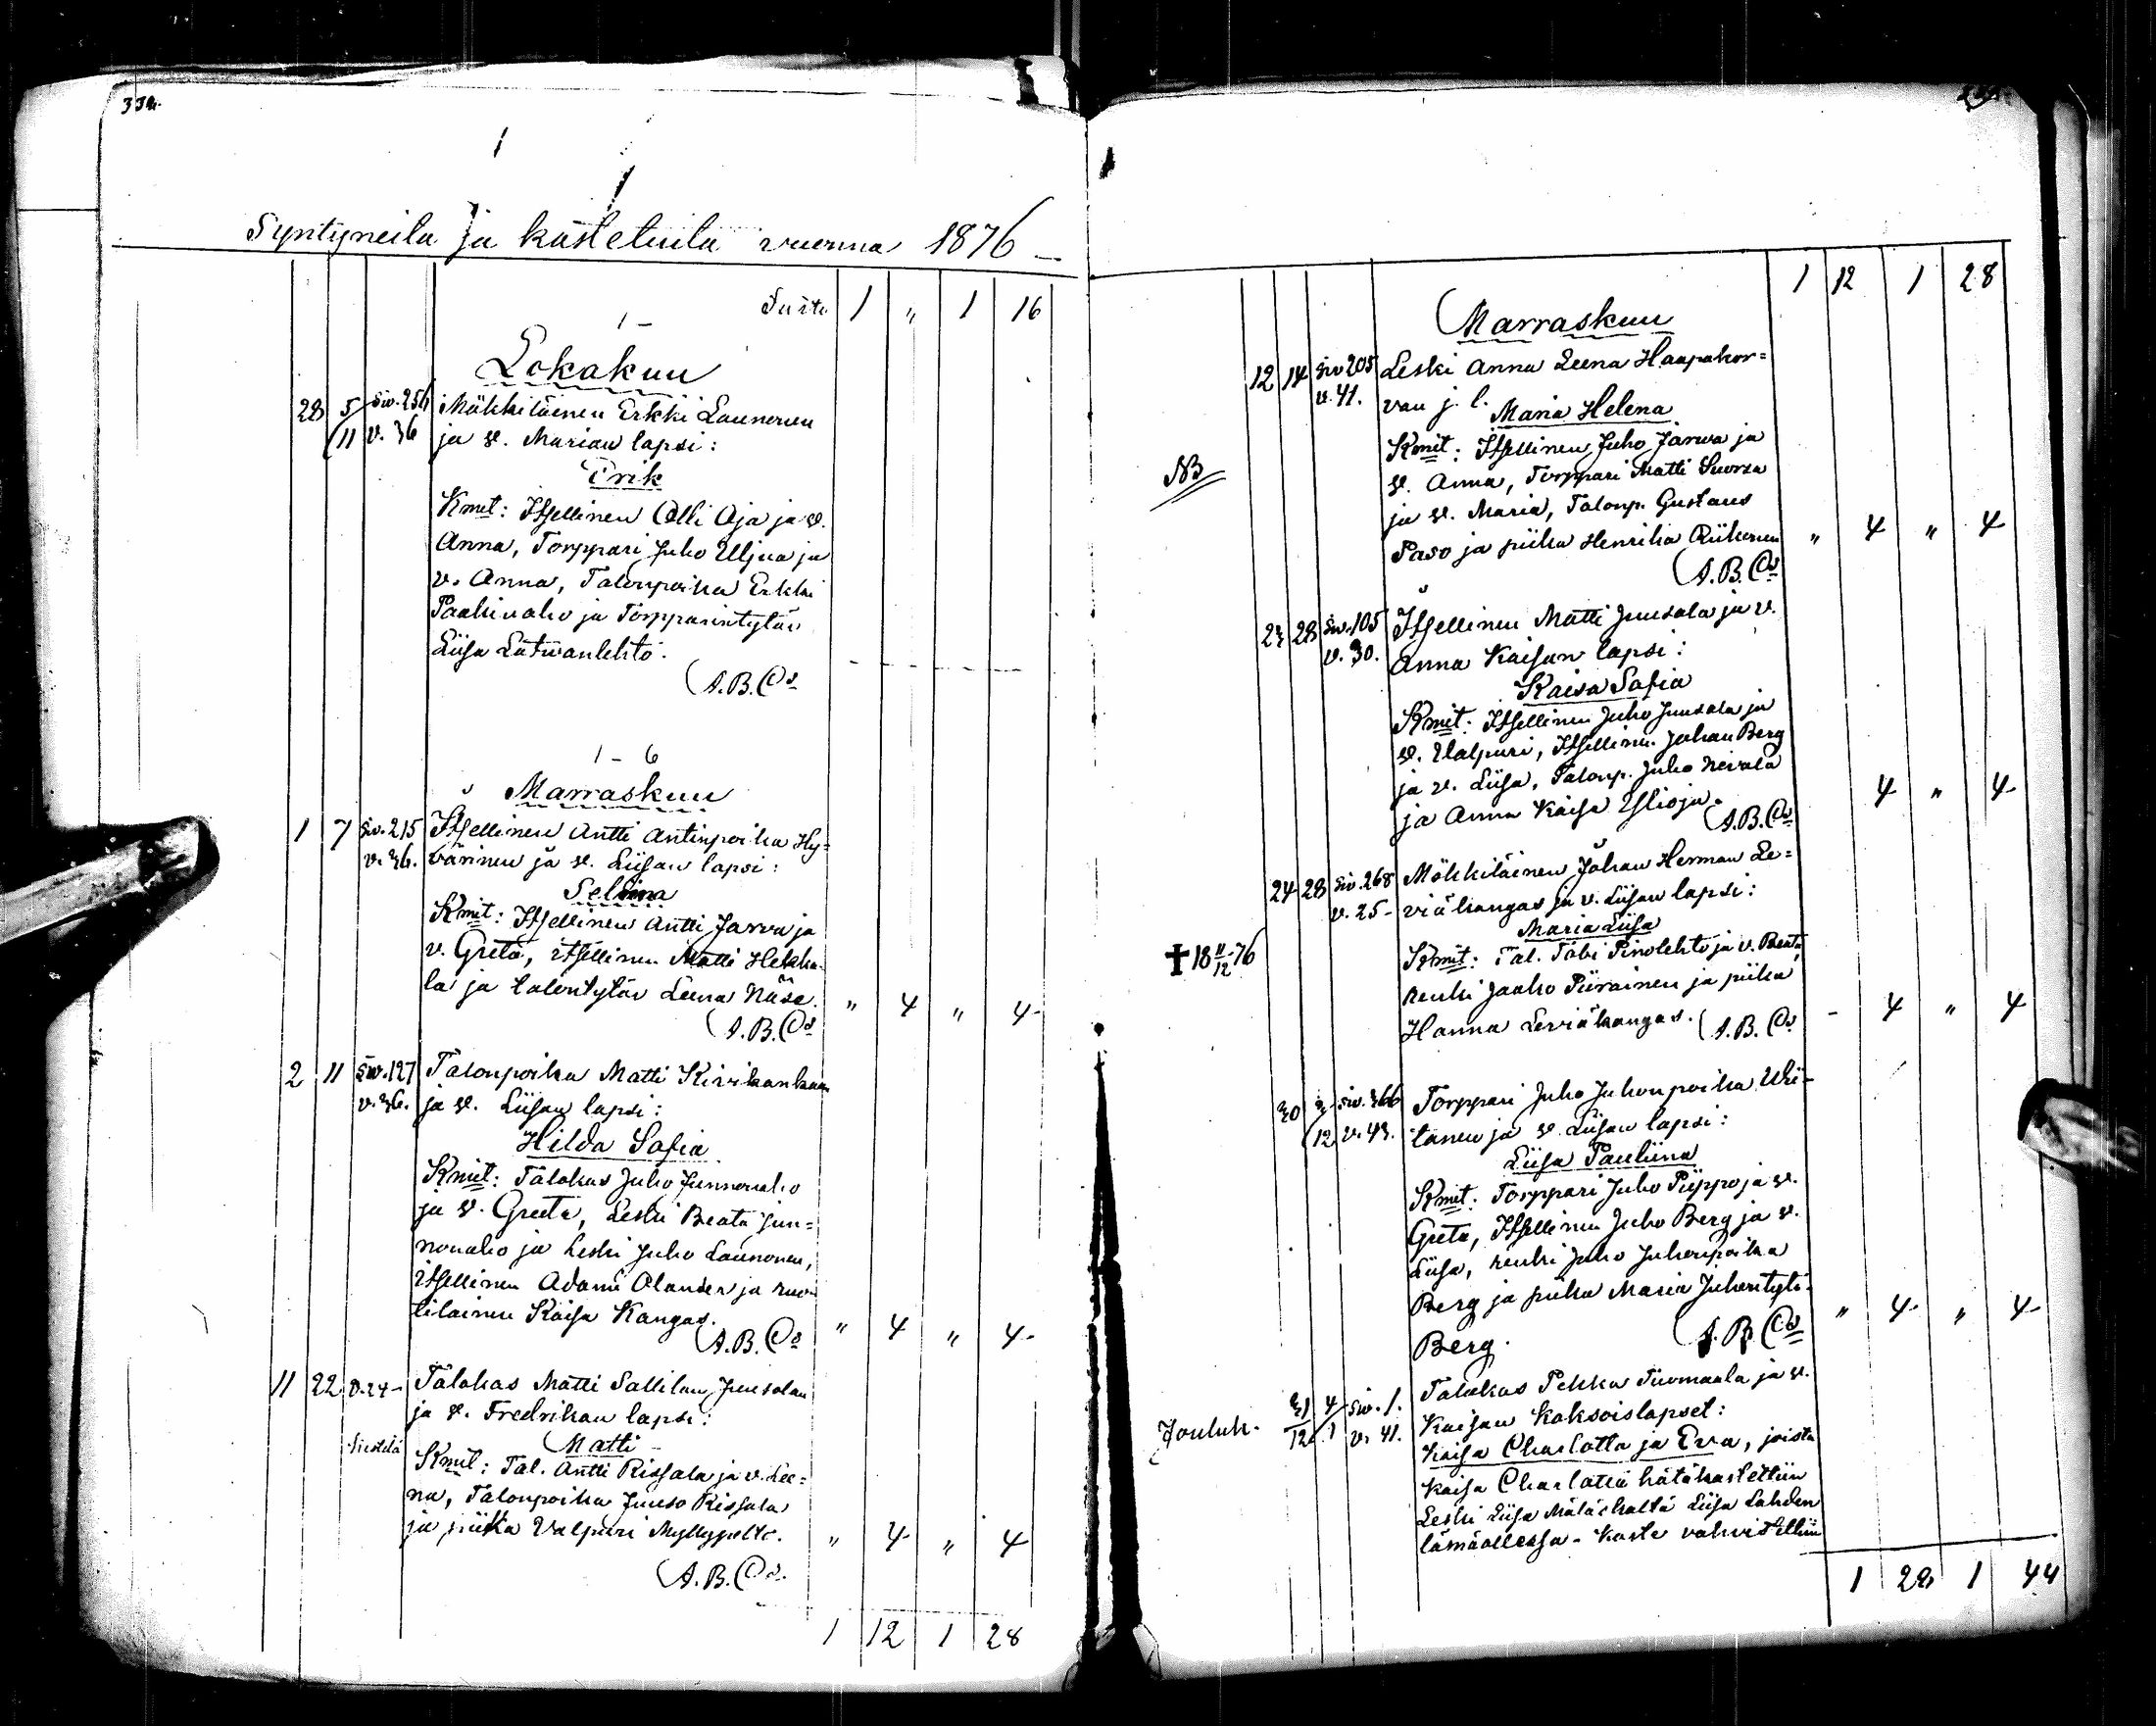 334.
Syntyneitä ja kastetuita vuonna 1876
Siirto 1 " 1 16
1 –
Lokakuu
28 5/11 Siv. 256 v. 36 Mökkiläinen Erkki Launosen
ja v. Marian lapsi:
Erik
Kmit: Itsellinen Olli Oja ja v.
Anna, Torppari Juho Uljua ja
v. Anna, Talonpoika Erkki
Paakinaho ja Torpparintytär
Liisa Latwanlehto.
A.B.Cs
1 – 6
Marraskuu
1 7 Siv. 215 v. 36. Itsellinen Antti Antinpoika Hy=
värinen ja v. Liisan lapsi:
Selina
Kmit: Itsellinen Antti Jarva ja
v. Greta, itsellinen Matti Hekka-
la ja talontytär Leena Näse.
" 4 " 4-
A.B.Cs
2 11 Siv. 127 v. 36. Talonpoika Matti Kivikankaan
ja v. Liisan lapsi:
Hilda Sofia
Kmit: Talokas Juho Junnonaho
ja v. Greeta, Leski Beata Jun=
nonaho ja Leski Juho Launonen,
itsellinen Adami Olander ja ruo-
tilainen Kaisa Kangas.
A.B.Cs " 4 " 4-
11 22 v. 24- Talokas Matti Sallilan Juusolan
ja v. Fredrikan lapsi:
Matti
Kmit: Tal. Antti Rissala ja v. Lee=
na, Talonpoika Juuso Rissala
ja piika Valpuri Myllypelto. " 4 " 4
A.B.Cs.
1 12 1 28
1 12 1 28
Marraskuu
12 14 Siv 205 v. 41. Leski Anna Leena Haapakor=
van j. l.
Maria Helena
Kmit: Itsellinen Juho Jarwa ja
NB
v. Anna, Torppari Matti Suorsa
ja v. Maria, Talonp. Gustaus
Paso ja piika Henrika Riikonen " 4 " 4
A.B.Cs
23 28 Siv. 105 v. 30. Itsellinen Matti Juusola ja v.
Anna Kaisan lapsi:
Kaisa Sofia
Kmit: Itsellinen Juho Juusola ja
v. Walpuri, Itsellinen Johan Berg
ja v. Liisa, Talonp. Juho Neivala
ja Anna Kaisa Ylioja. 4 " 4
A.B.Cs
24 28 Siv. 268 v. 25- Mökkiläinen Johan Herman Le=
viäkangas ja v. Liisan lapsi:
Maria Liisa
✝ 18 11/12 76
Kmit: Tal. Tobi Pinolehto ja v. Beata,
renki Jaako Piirainen ja piika
Hanna Leviäkangas. A.B.Cs - 4 " 4
30 3/12 Siv. 366 v. 43. Torppari Juho Juhonpoika Wii-
tanen ja v. Liisan lapsi:
Liisa Pauliina
Kmit: Torppari Juho Piippo ja v.
Greta, Itsellinen Juho Berg ja v.
Liisa, renki Juho Juhonpoika
Berg ja piika Maria Juhontytö
Berg. A.B.Cs " 4- " 4-
Jouluk. 31/12 4/1 Siv. 1. v. 41. Talokas Pekka Tuomaala ja v.
Kaisan kaksoislapset:
Kaisa Charlotta ja Eva, joista
Kaisa Charlotta hätäkastettiin
Leski Liisa Liisa Lahden
läsnäollessa - kaste vahvistettiin
1 28 1 44